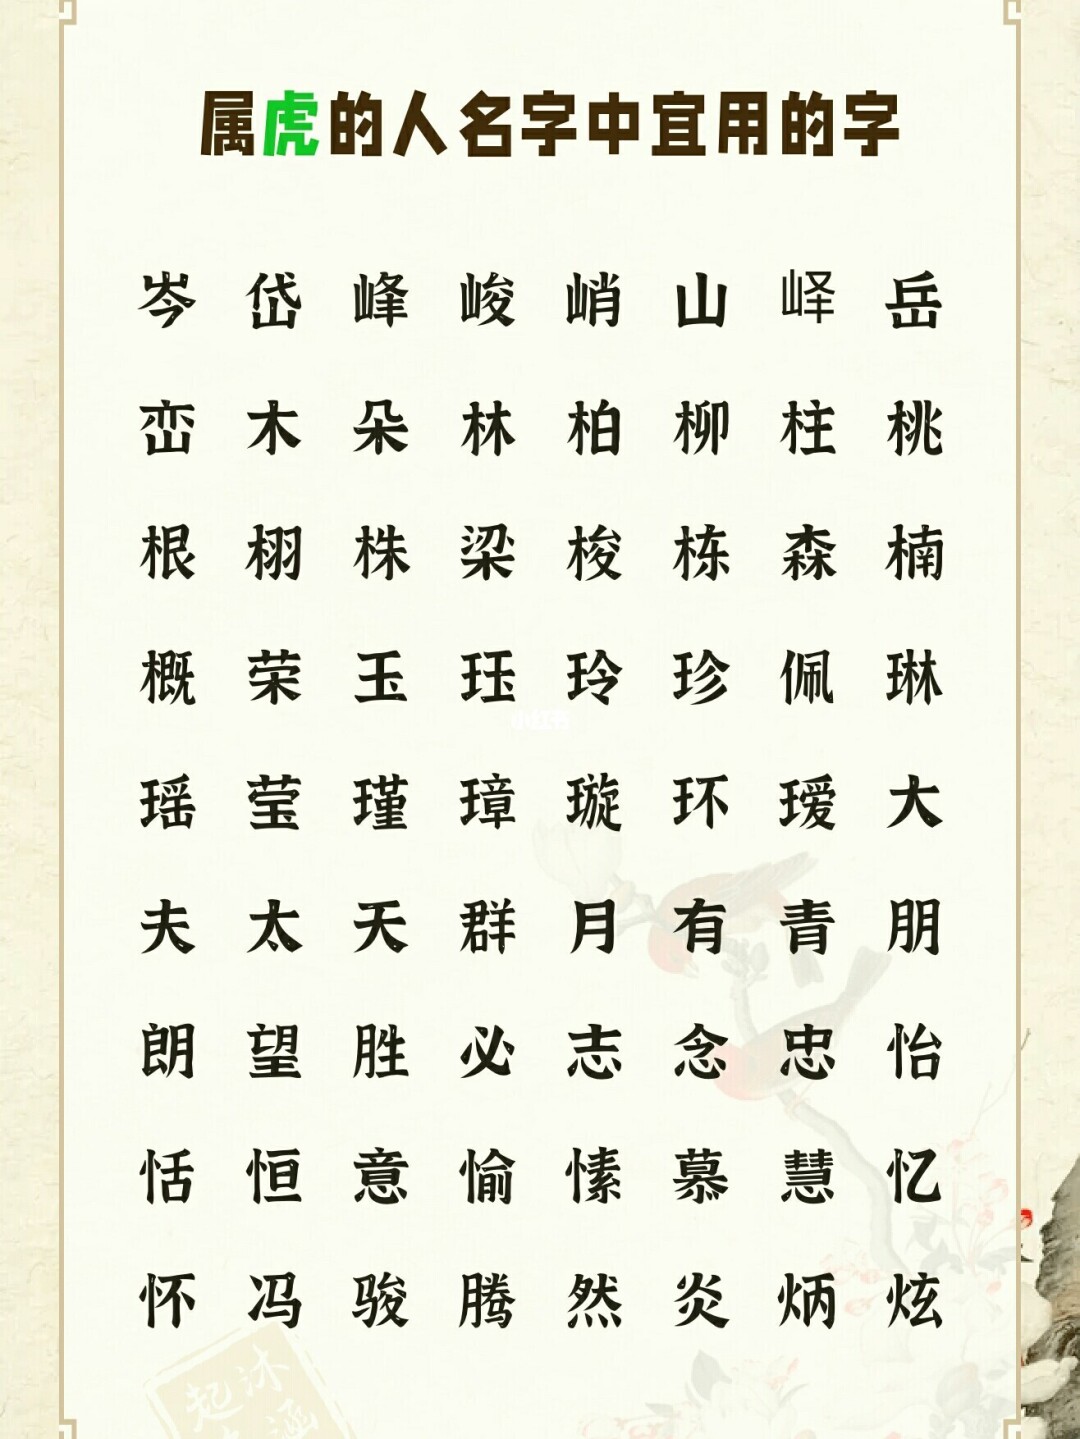 属虎的人名字中宜用的字
岑 岱 峰 峻 峭 山 峄 岳
峦 木 朵 林 柏 柳 柱 桃
根 栩 株 梁 梭 栋 森 楠
概 荣 玉 珏 玲 珍 佩 琳
瑶 莹 瑾 璋 璇 环 瑷 大
夫 太 天 群 月 有 青 朋
朗 望 胜 必 志 念 忠 怡
恬 恒 意 愉 愫 慕 慧 忆
怀 冯 骏 腾 然 炎 炳 炫